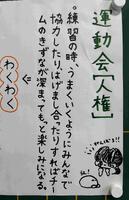 運動会[人権]
。練習の時、うまくいくようにみんなで
協力したりはげまし合ったりすればチー
ムのきずなが深まってもっと楽しみになる。
わくわく